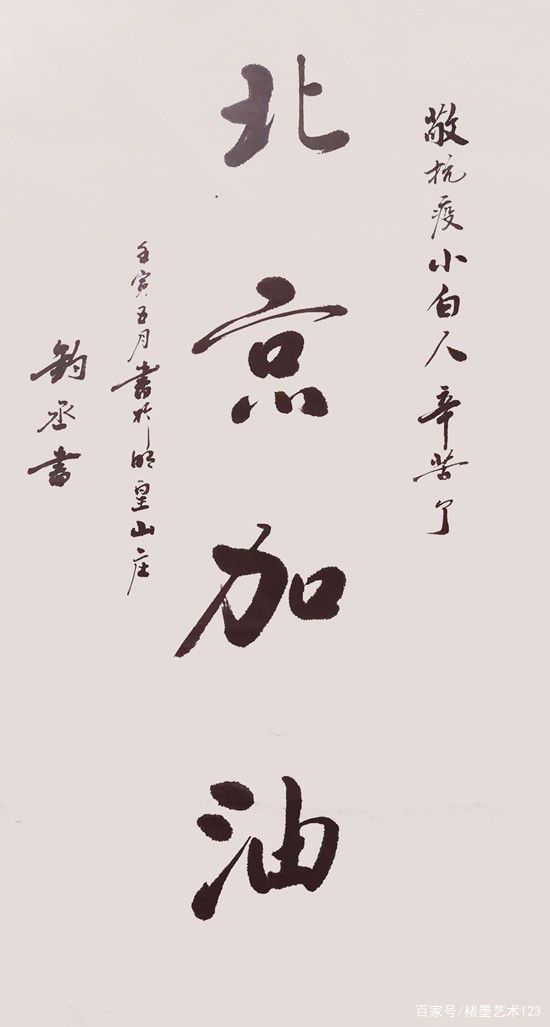 敬抗疫小白人辛苦了
北京加油
壬寅五月書於明皇山庄
钧丞書
百家号/楮墨艺术123